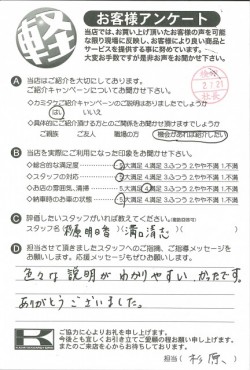 軽
お客様アンケート
当店では、お買い上げ頂いたお客様の声を可能
な限り現場に反映し、お客様により良い商品と
サービスを提供する事に努めています。
大変お手数ですが是非お声をお聞かせ下さい。
A 当店はご紹介を大切にしております。
ご紹介キャンペーンについてお聞かせ下さい。
◇カミタケご紹介キャンペーンのご説明はありましたでしょうか
はい いいえ
◇具体的にご紹介頂ける方とのご関係をお聞かせ頂けますでしょうか
ご親族 ご友人 職場の方 機会があれば紹介したい
B 当店を実際にご利用になった印象をお聞かせ下さい。
◇総合的な満足度 5.大満足 4.満足 3.ふつう 2.やや不満 1.不満
◇スタッフの対応 5.大満足 4.満足 3.ふつう 2.やや不満 1.不満
◇お店の雰囲気、清掃 5.大満足 4.満足 3.ふつう 2.やや不満 1.不満
◇納車時のお車の状態 5.大満足 4.満足 3.ふつう 2.やや不満 1.不満
C 評価したいスタッフがいれば教えてください。(複数回答可)
スタッフ名( 杉原明日香 )( 溝口清志 )
D 担当させて頂きましたスタッフへのご指導、ご指導メッセージを
お願いします。応援メッセージもぜひお願いします。
色々な説明がわかりやすいかったです。
ありがとうございました。
K
ご協力に心よりお礼を申し上げます。
今後とも宜しくお引き立てご愛顧の程お願い申し上げます。
またのご来店を心からお待ちしております。
担当( 杉原 )